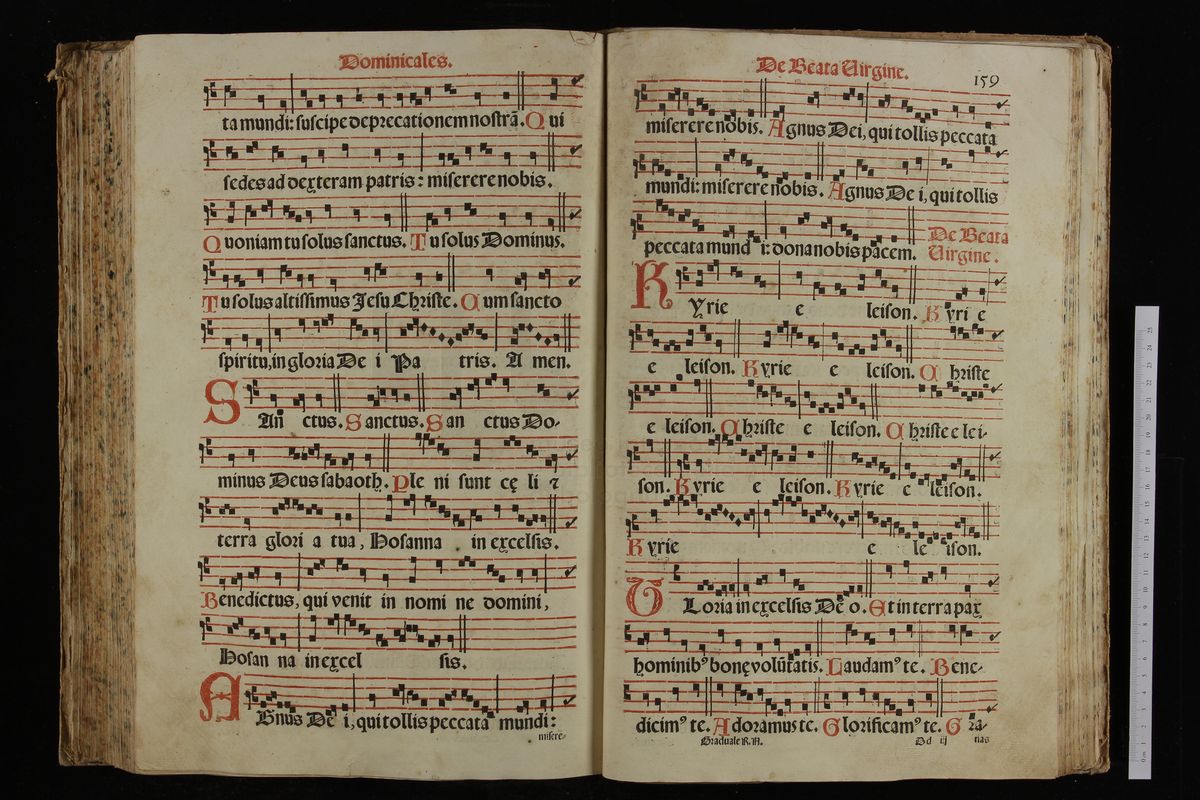 Dominicales.
ta mundi: suscipe deprecationem nostrã. Qui
sedes ad dexteram patris: miserere nobis.
Quoniam tu solus sanctus. Tu solus Dominus.
Tu solus altissimus Jesu Christe. Cum sancto
spiritu, in gloria De i Pa tris. A men.
SAn ctus. Sanctus. San ctus Do-
minus Deus sabaoth. Ple ni sunt cę li ⁊
terra glori a tua, Hosanna in excelsis.
Benedictus, qui venit in nomi ne domini,
Hosan na in excel sis.
AGnus De i, qui tollis peccata mundi:
misere-
De Beata Virgine.
159
miserere nobis. Agnus Dei, qui tollis peccata
mundi: miserere nobis. Agnus De i, qui tollis
peccata mund i: dona nobis pacem.
De Beata
Virgine.
KYrie e leison. Kyri e
e leison. Kyrie e leison. Christe
e leison. Christe e leison. Christe e lei-
son. Kyrie e leison. Kyrie e leison.
Kyrie e le ison.
GLoria in excelsis De o. Et in terra pax
hominibꝰ bonę volũtatis. Laudamꝰ te. Bene-
dicimꝰ te. Adoramus te. Glorificamꝰ te. Gra-
Graduale R.A.
Dd iij
nas